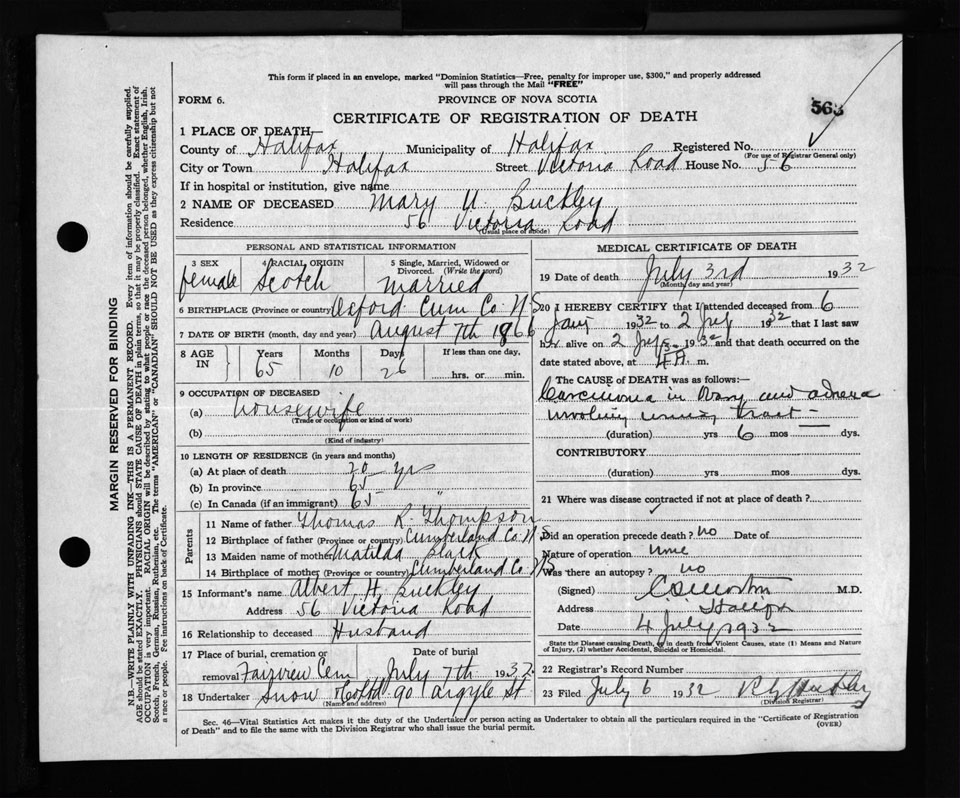 This form if placed in an envelope, marked "Dominion Statistics—Free, penalty for improper use, $300," and properly addressed
will pass through the Mail "FREE"
FORM 6.
PROVINCE OF NOVA SCOTIA
563
CERTIFICATE OF REGISTRATION OF DEATH
1 PLACE OF DEATH—
County of Halifax Municipality of Halifax Registered No.
(For use of Registrar General only)
City or Town Halifax Street Victoria Road House No. 56
If in hospital or institution, give name
2 NAME OF DECEASED Mary U. Buckley
Residence 56 Victoria Road
(Usual place of abode)
PERSONAL AND STATISTICAL INFORMATION
3 SEX 4 RACIAL ORIGIN 5 Single, Married, Widowed or
Divorced. (Write the word)
female Scotch married
6 BIRTHPLACE (Province or country) Oxford Cum Co N S
7 DATE OF BIRTH (month, day and year) August 7th 1866
8 AGE IN Years Months Days If less than one day,
65 10 26 hrs. or min.
9 OCCUPATION OF DECEASED
(a) housewife
(Trade or occupation or kind of work)
(b)
(Kind of industry)
10 LENGTH OF RESIDENCE (in years and months)
(a) At place of death 20 yrs
(b) In province 65 "
(c) In Canada (if an immigrant) 65 "
Parents
11 Name of father Thomas R. Thompson
12 Birthplace of father (Province or country) Cumberland Co N S
13 Maiden name of mother Matilda
14 Birthplace of mother (Province or country) Cumberland Co N S
15 Informant's name Albert H. Buckley
Address 56 Victoria Road
16 Relationship to deceased Husband
17 Place of burial, cremation or Date of burial
removal Fairview Cem July 7th 1932
18 Undertaker Snow & Co Ltd 90 Argyle St
(Name and address)
MEDICAL CERTIFICATE OF DEATH
19 Date of death July 3rd 1932
(Month, day and year)
20 I HEREBY CERTIFY that I attended deceased from 6
Jany 1932 to 2 July 1932 that I last saw
her alive on 2 July 1932 and that death occurred on the
date stated above, at 4 A. m.
The CAUSE OF DEATH was as follows:—
Carcinoma in Ovary and adnexa
involving urinary tract —
(duration) yrs 6 mos dys.
CONTRIBUTORY
(duration) yrs mos dys.
21 Where was disease contracted if not at place of death?
Did an operation precede death? no Date of
Nature of operation none
Was there an autopsy? no
(Signed) M.D.
Address Halifax
Date 4 July 1932
State the Disease causing Death, or in death from Violent Causes, state (1) Means and Nature
of Injury, (2) whether Accidental, Suicidal or Homicidal.
22 Registrar's Record Number
23 Filed July 6 1932
(Division Registrar)
Sec. 46—Vital Statistics Act makes it the duty of the Undertaker or person acting as Undertaker to obtain all the particulars required in the "Certificate of Registration
of Death" and to file the same with the Division Registrar who shall issue the burial permit.
(OVER)
MARGIN RESERVED FOR BINDING
N.B.—WRITE PLAINLY WITH UNFADING INK—THIS IS A PERMANENT RECORD. Every item of information should be carefully supplied.
AGE should be stated EXACTLY. PHYSICIANS should STATE CAUSE OF DEATH in plain terms, so that it may be properly classified. Exact statement of
OCCUPATION is very important. RACIAL ORIGIN will be described by stating to what people or race the deceased person belonged, whether English, Irish,
Scotch, French, German, Russian, Ruthenian, etc. The terms "AMERICAN" or "CANADIAN" SHOULD NOT BE USED as they express citizenship but not
a race or people. Fee instructions on back of Certificate.